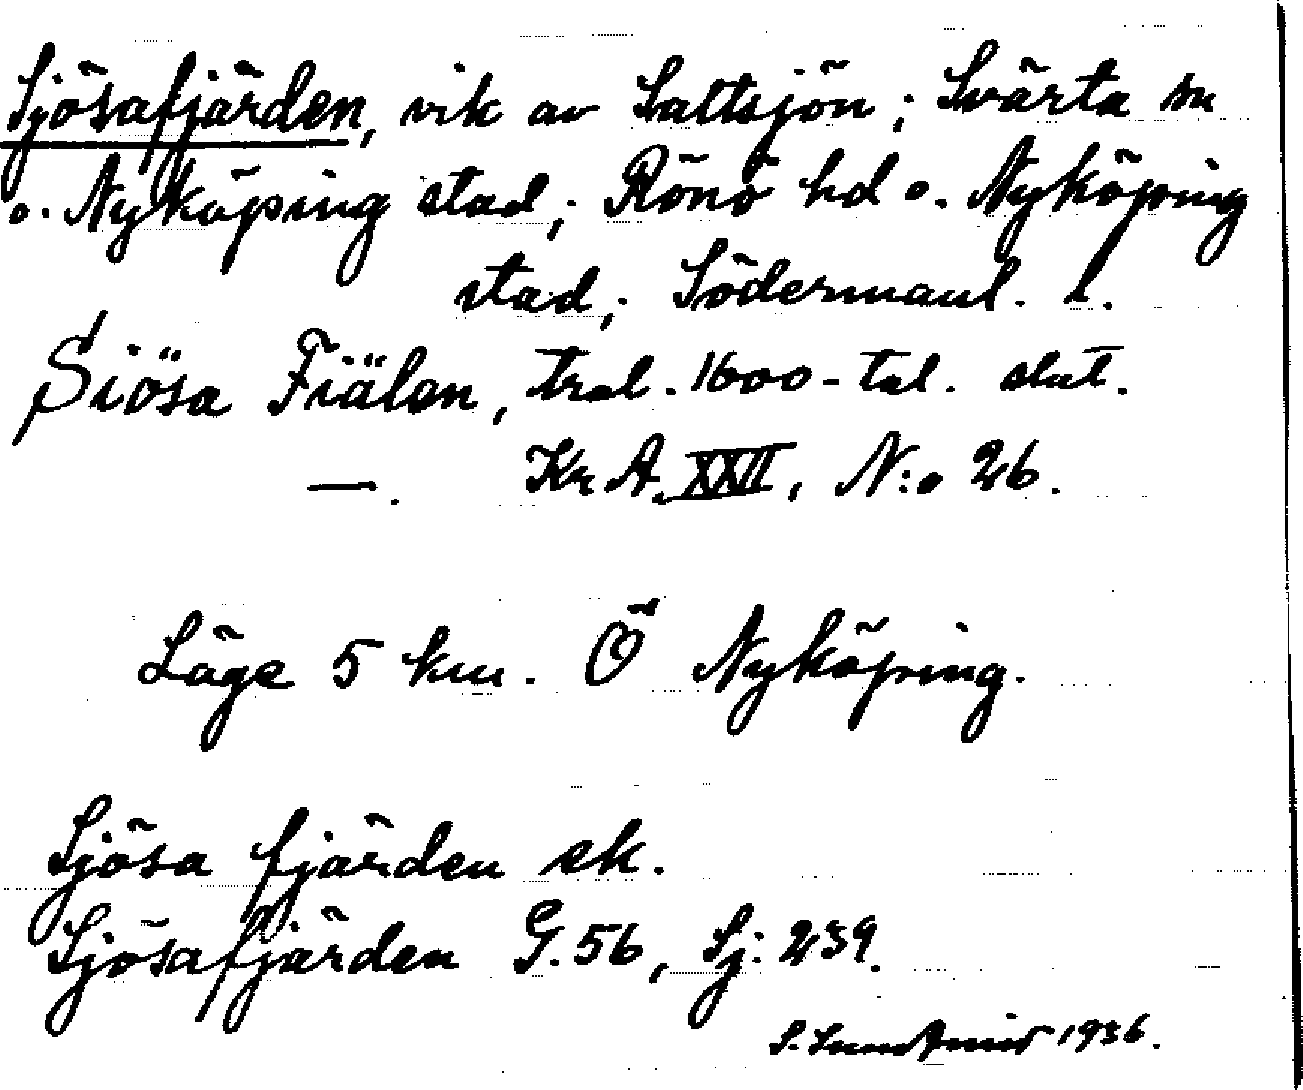 Sjösafjärden, vik av Saltsjön; Svärta sn
o. Nyköping stad; Rönö hd o. Nyköping
stad; Södermanl. l.
Siösa Fiälen, trol. 1600-tal. slut.
—. Kr A. XXII, N:o 26.
Läge 5 km. Ö Nyköping.
Sjösa fjärden ek.
Sjösafjärden G. 56, Sj: 239.
S. 1936.